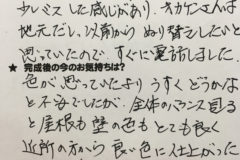 少しミスした感じがあり、ナカヤマさんは
地元だし、以前から ぬり替えしたいと
思っていたので すぐに電話しました。
★ 完成後の今のお気持ちは?
色が思っていたより うすく どうかな
と不安でしたが、全体のバランス見る
と屋根も 壁の色も とても良く
近所の方から 良い色に仕上がった